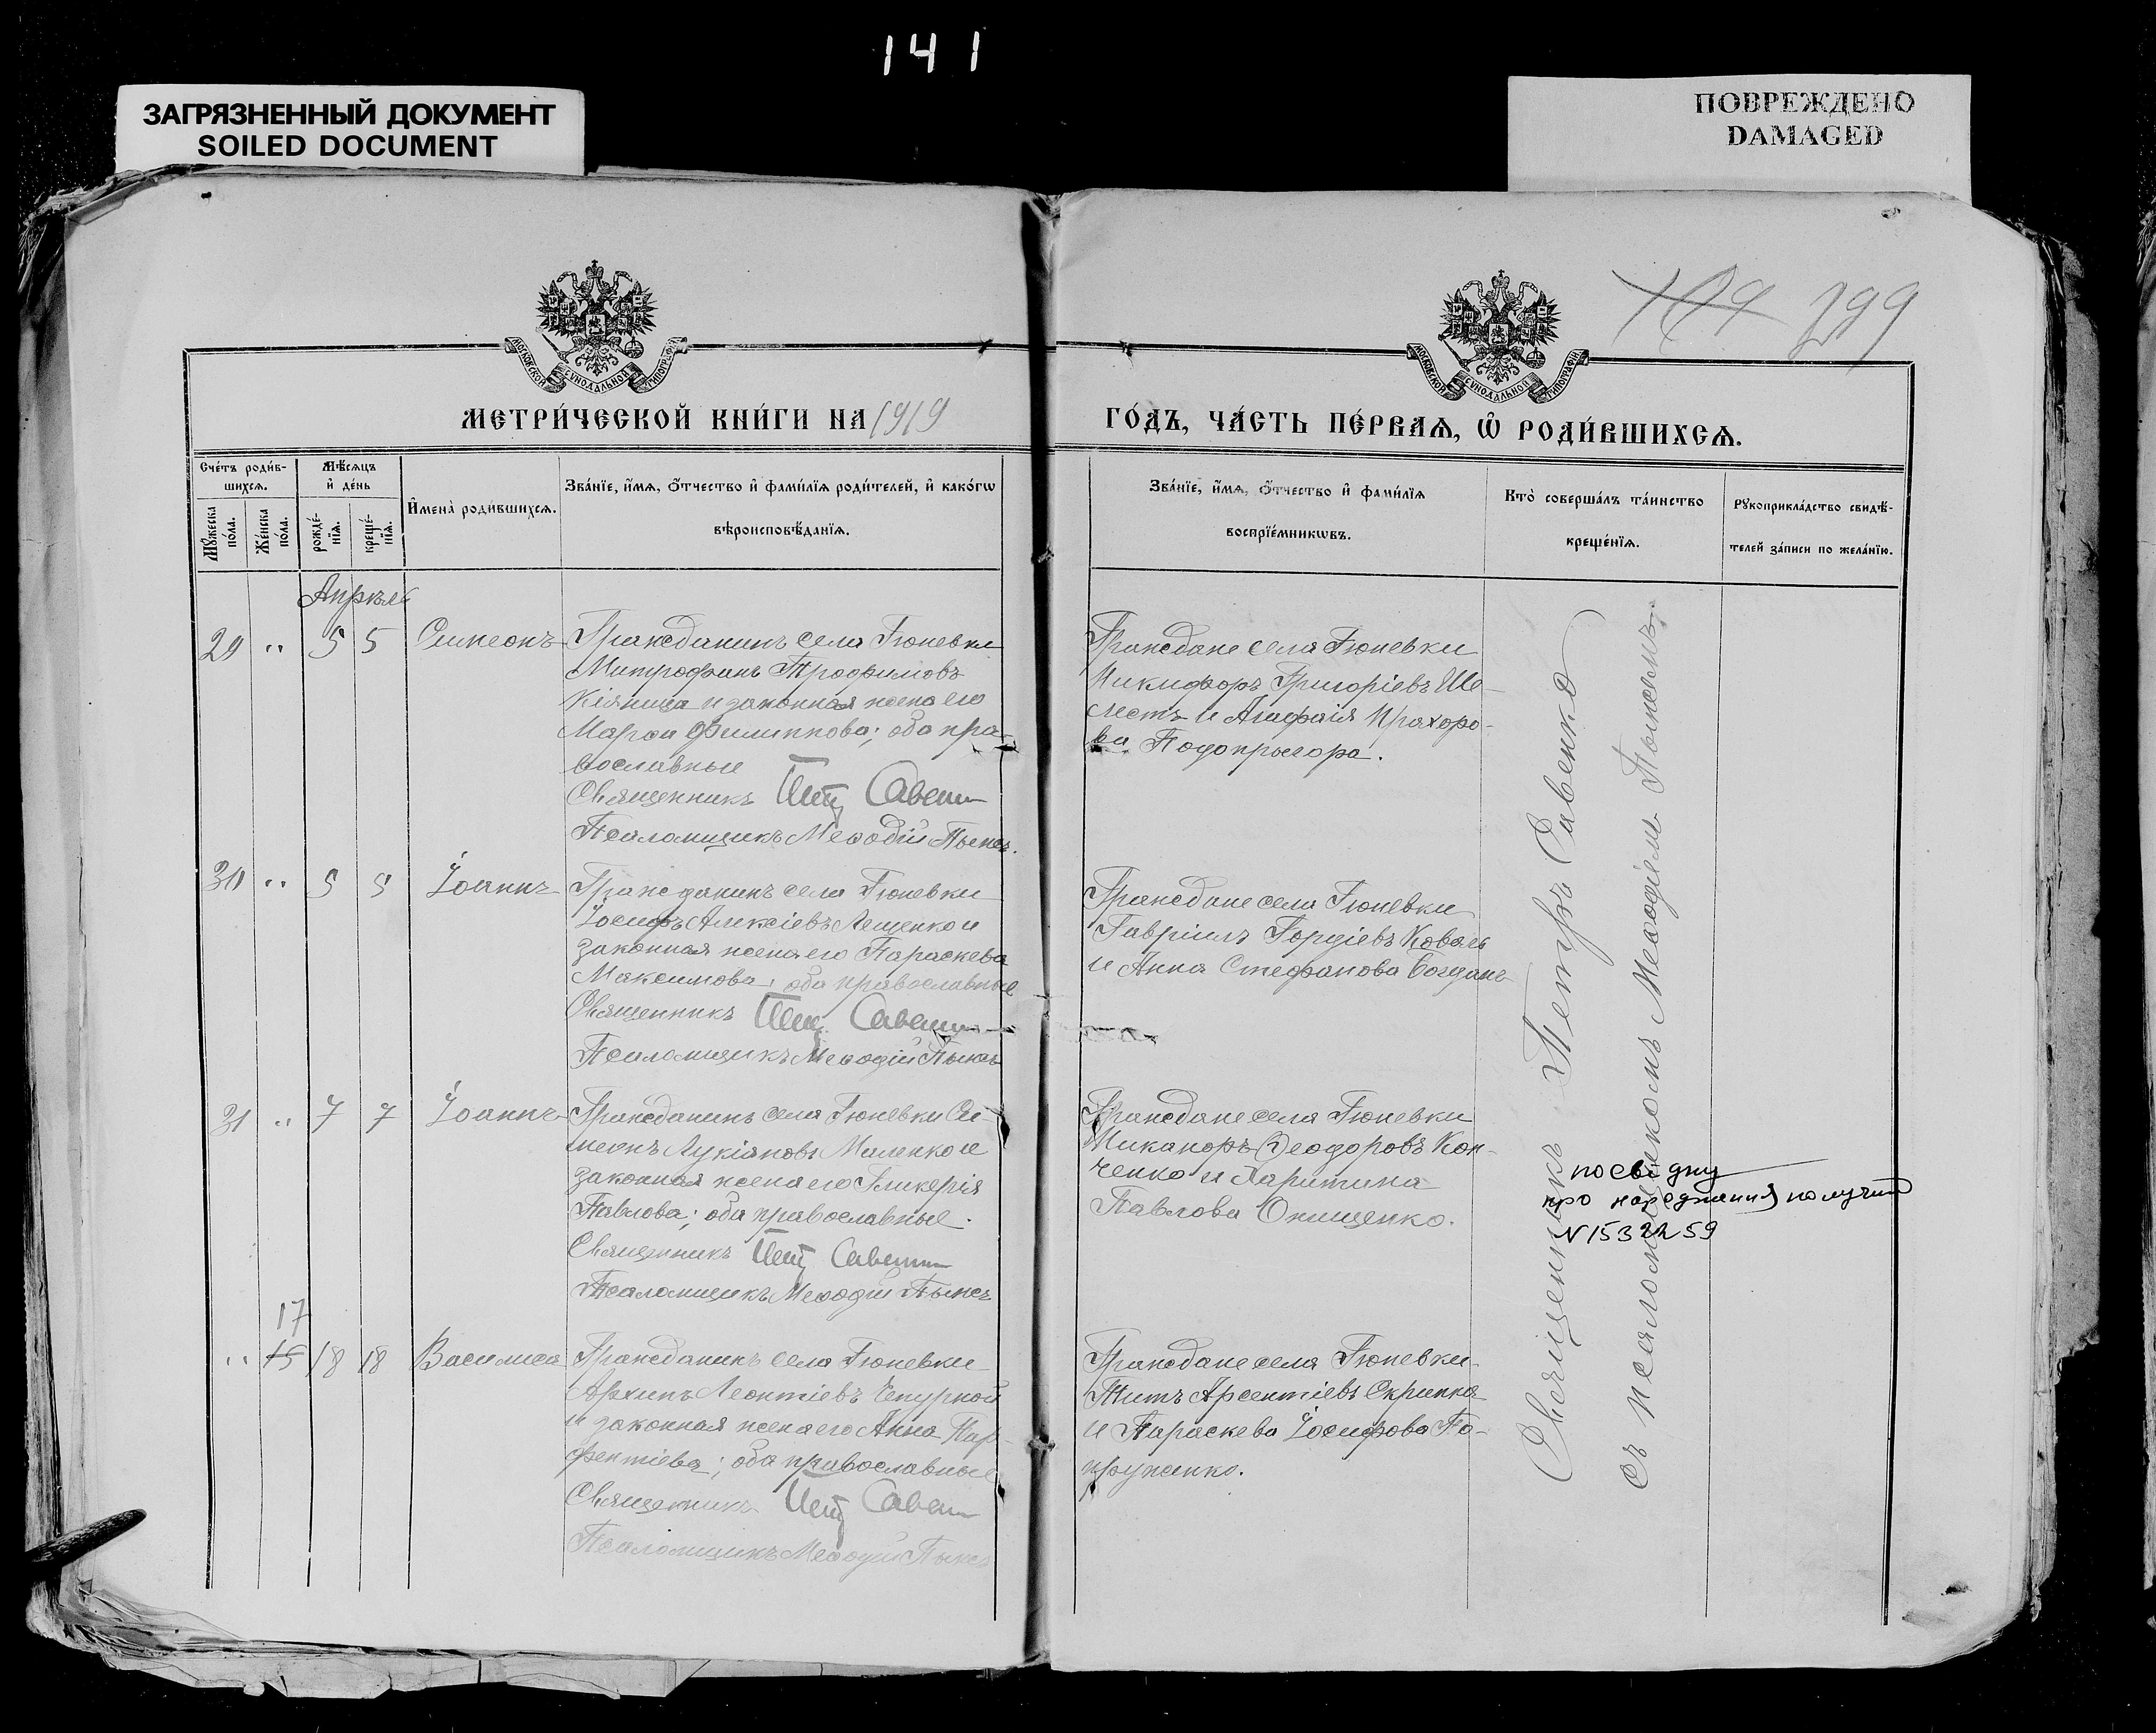 141
ЗАГРЯЗНЕННЫЙ ДОКУМЕНТ
SOILED DOCUMENT
ПОВРЕЖДЕНО
DAMAGED
199
МОСКОВСКОЙ СѴНОДАЛЬНОЙ ТИПОГРАФІИ
МОСКОВСКОЙ СѴНОДАЛЬНОЙ ТИПОГРАФІИ
МЕТРИ́ЧЕСКОЙ КНИ́ГИ НА 1919
ГО́ДЪ, ЧА́СТЬ ПЕ́РВАѦ, Ѡ҆ РОДИ́ВШИХСѦ.
Сче́тъ роди́в-
шихсѧ.
Мꙋ́жеска по́ла.
Же́нска по́ла.
Мѣ́сѧцъ
и҆ де́нь
рожде́-
нїѧ.
креще́-
нїѧ.
И҆мена̀ роди́вшихсѧ.
Зва́нїе, и҆́мѧ, ѻ҆́тчество и҆ фами́лїѧ роди́телей, и҆ како́гѡ
вѣроисповѣ́данїѧ.
Зва́нїе, и҆́мѧ, ѻ҆́тчество и҆ фами́лїѧ
воспрїе́мникѡвъ.
Кто̀ соверша́лъ та́инство
креще́нїѧ.
Рꙋкоприкла́дство свидѣ́-
телей за́писи по жела́нїю.
Апрѣль
29 " 5 5 Симеонъ
Гражданинъ села Гюневки
Митрофанъ Трофимовъ
Кіяница и законная жена его
Марѳа Филиппова; оба пра-
вославные
Священникъ Петр Савенко
Псаломщикъ Меѳодій
Граждане села Гюневки
Никифоръ Григоріевъ Ше-
лестъ и Агафія Прохоро-
ва Подопригора.
30 " 5 5 Іоаннъ
Гражданинъ села Гюневки
Іосифъ Алексіевъ Лещенко и
законная жена его Параскева
Максимова; оба православные
Священникъ Петр Савенко
Псаломщикъ Меѳодій
Граждане села Гюневки
Гавріилъ Гордіевъ Коваль
и Анна Стефанова Богдан-
31 " 7 7 Іоаннъ
Гражданинъ села Гюневки Си-
меонъ Лукіановъ Маленко и
законная жена его Гликерія
Павлова; оба православные.
Священникъ Петр Савенко
Псаломщикъ Меѳодій
Граждане села Гюневки
Никаноръ Ѳеодоровъ Кон-
ченко и Харитина
Павлова Онищенко.
посвідку
про народження получив
N 153
17
" 15 18 18 Василиса
Гражданинъ села Гюневки
Архипъ Леонтіевъ Чепурной
и законная жена его Анна Пар-
фентіева; оба православные
Священникъ Петр Савенко
Псаломщикъ Меѳодій
Граждане села Гюневки
Титъ Арсентіевъ Скрипка
и Параскева Іосифова По-
пруженко.
Священникъ Петръ Савенко
съ псаломщикомъ Меѳодіем